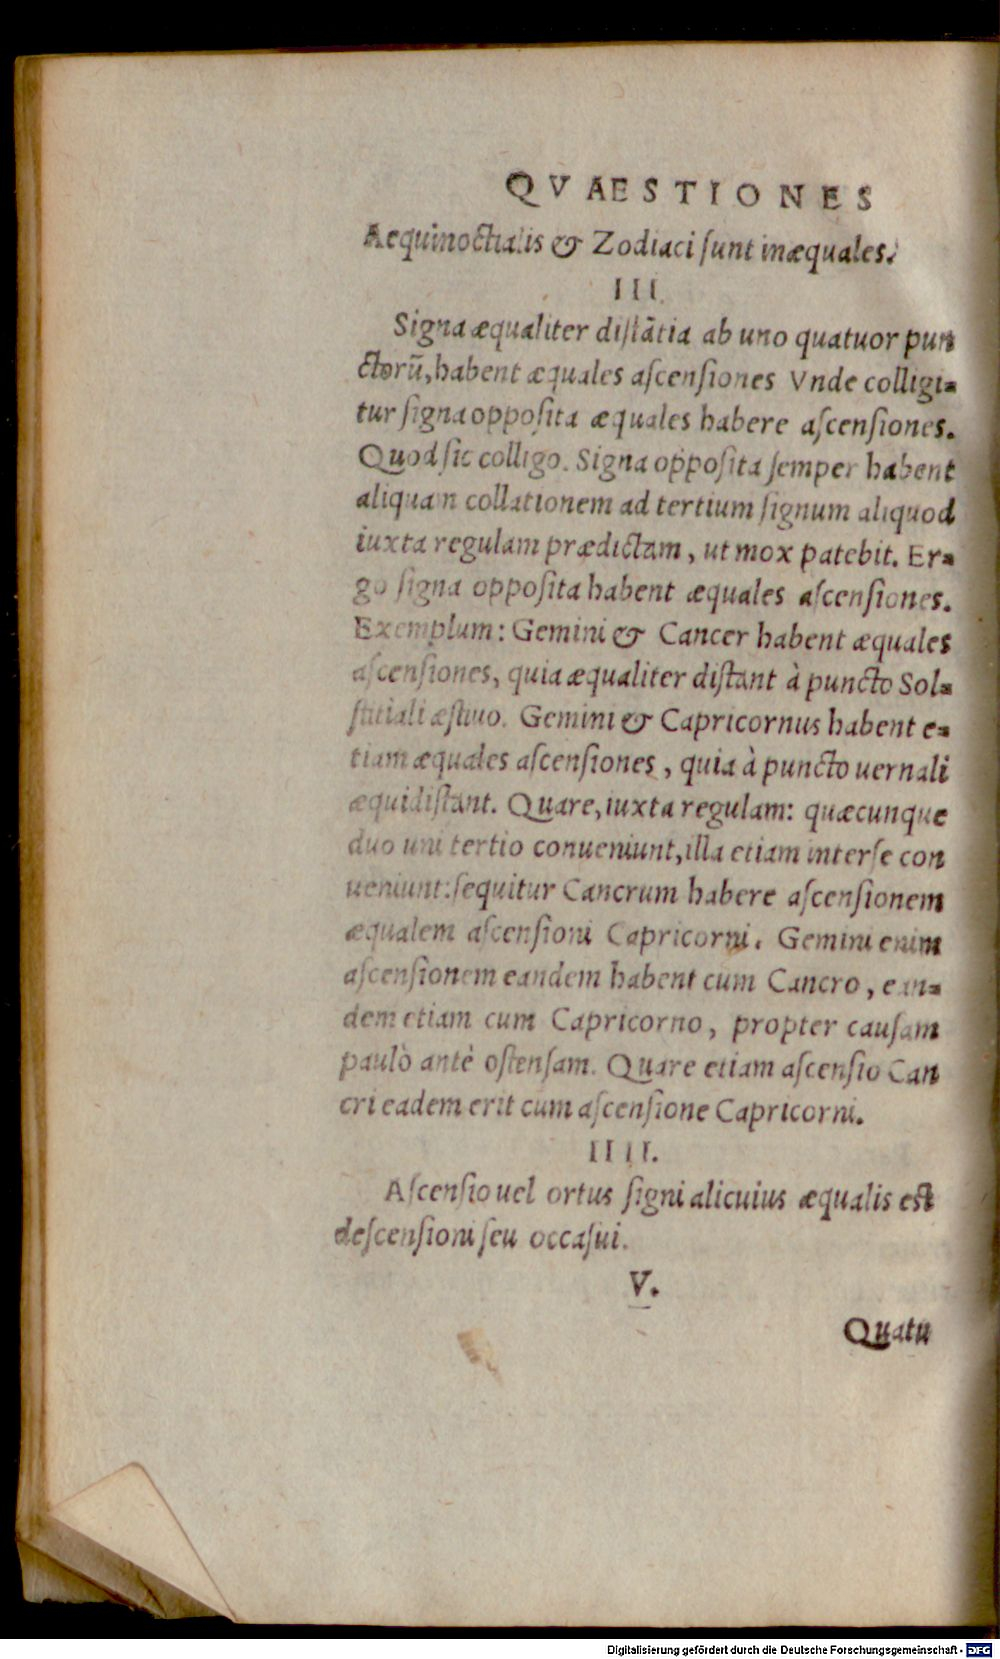 QVAESTIONES
Aequinoctialis & Zodiaci ſunt inæquales.
III.
Signa æqualiter diſtãtia ab uno quatuor pun
ctorũ, habent æquales aſcenſiones Vnde colligi-
tur ſigna oppoſita æquales habere aſcenſiones.
Quod ſic colligo. Signa oppoſita ſemper habent
aliquam collationem ad tertium ſignum aliquod
iuxta regulam prædictam, ut mox patebit. Er-
go ſigna oppoſita habent æquales aſcenſiones.
Exemplum: Gemini & Cancer habent æquales
aſcenſiones, quia æqualiter diſtant à puncto Sol-
ſtitiali æſtiuo. Gemini & Capricornus habent e-
tiam æquales aſcenſiones, quia à puncto uernali
æquidiſtant. Quare, iuxta regulam: quæcunque
duo uni tertio conueniunt, illa etiam inter ſe con
ueniunt: ſequitur Cancrum habere aſcenſionem
æqualem aſcenſioni Capricorni. Gemini enim
aſcenſionem eandem habent cum Cancro, ean-
dem etiam cum Capricorno, propter cauſam
paulò antè oſtenſam. Quare etiam aſcenſio Can
cri eadem erit cum aſcenſione Capricorni.
IIII.
Aſcenſio uel ortus ſigni alicuius æqualis est
deſcenſioni ſeu occaſui.
V.
Quatu
Digitalisierung gefördert durch die Deutsche Forschungsgemeinschaft - DFG